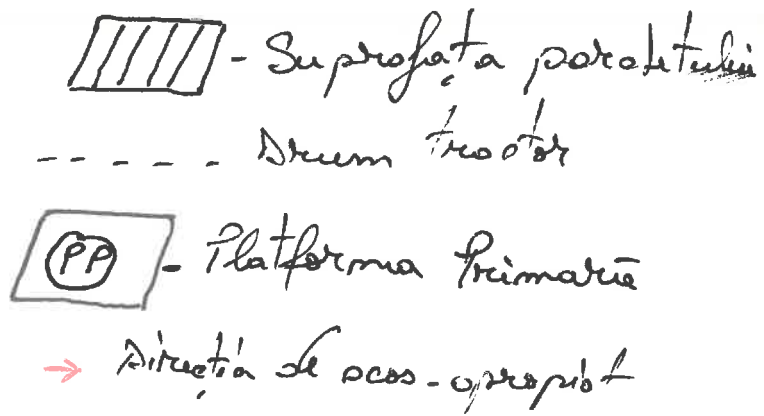 - Suprafața parchetului
- - - - - Drum tractor
PP - Platforma Primară
→ Direcția de scos-apropiat